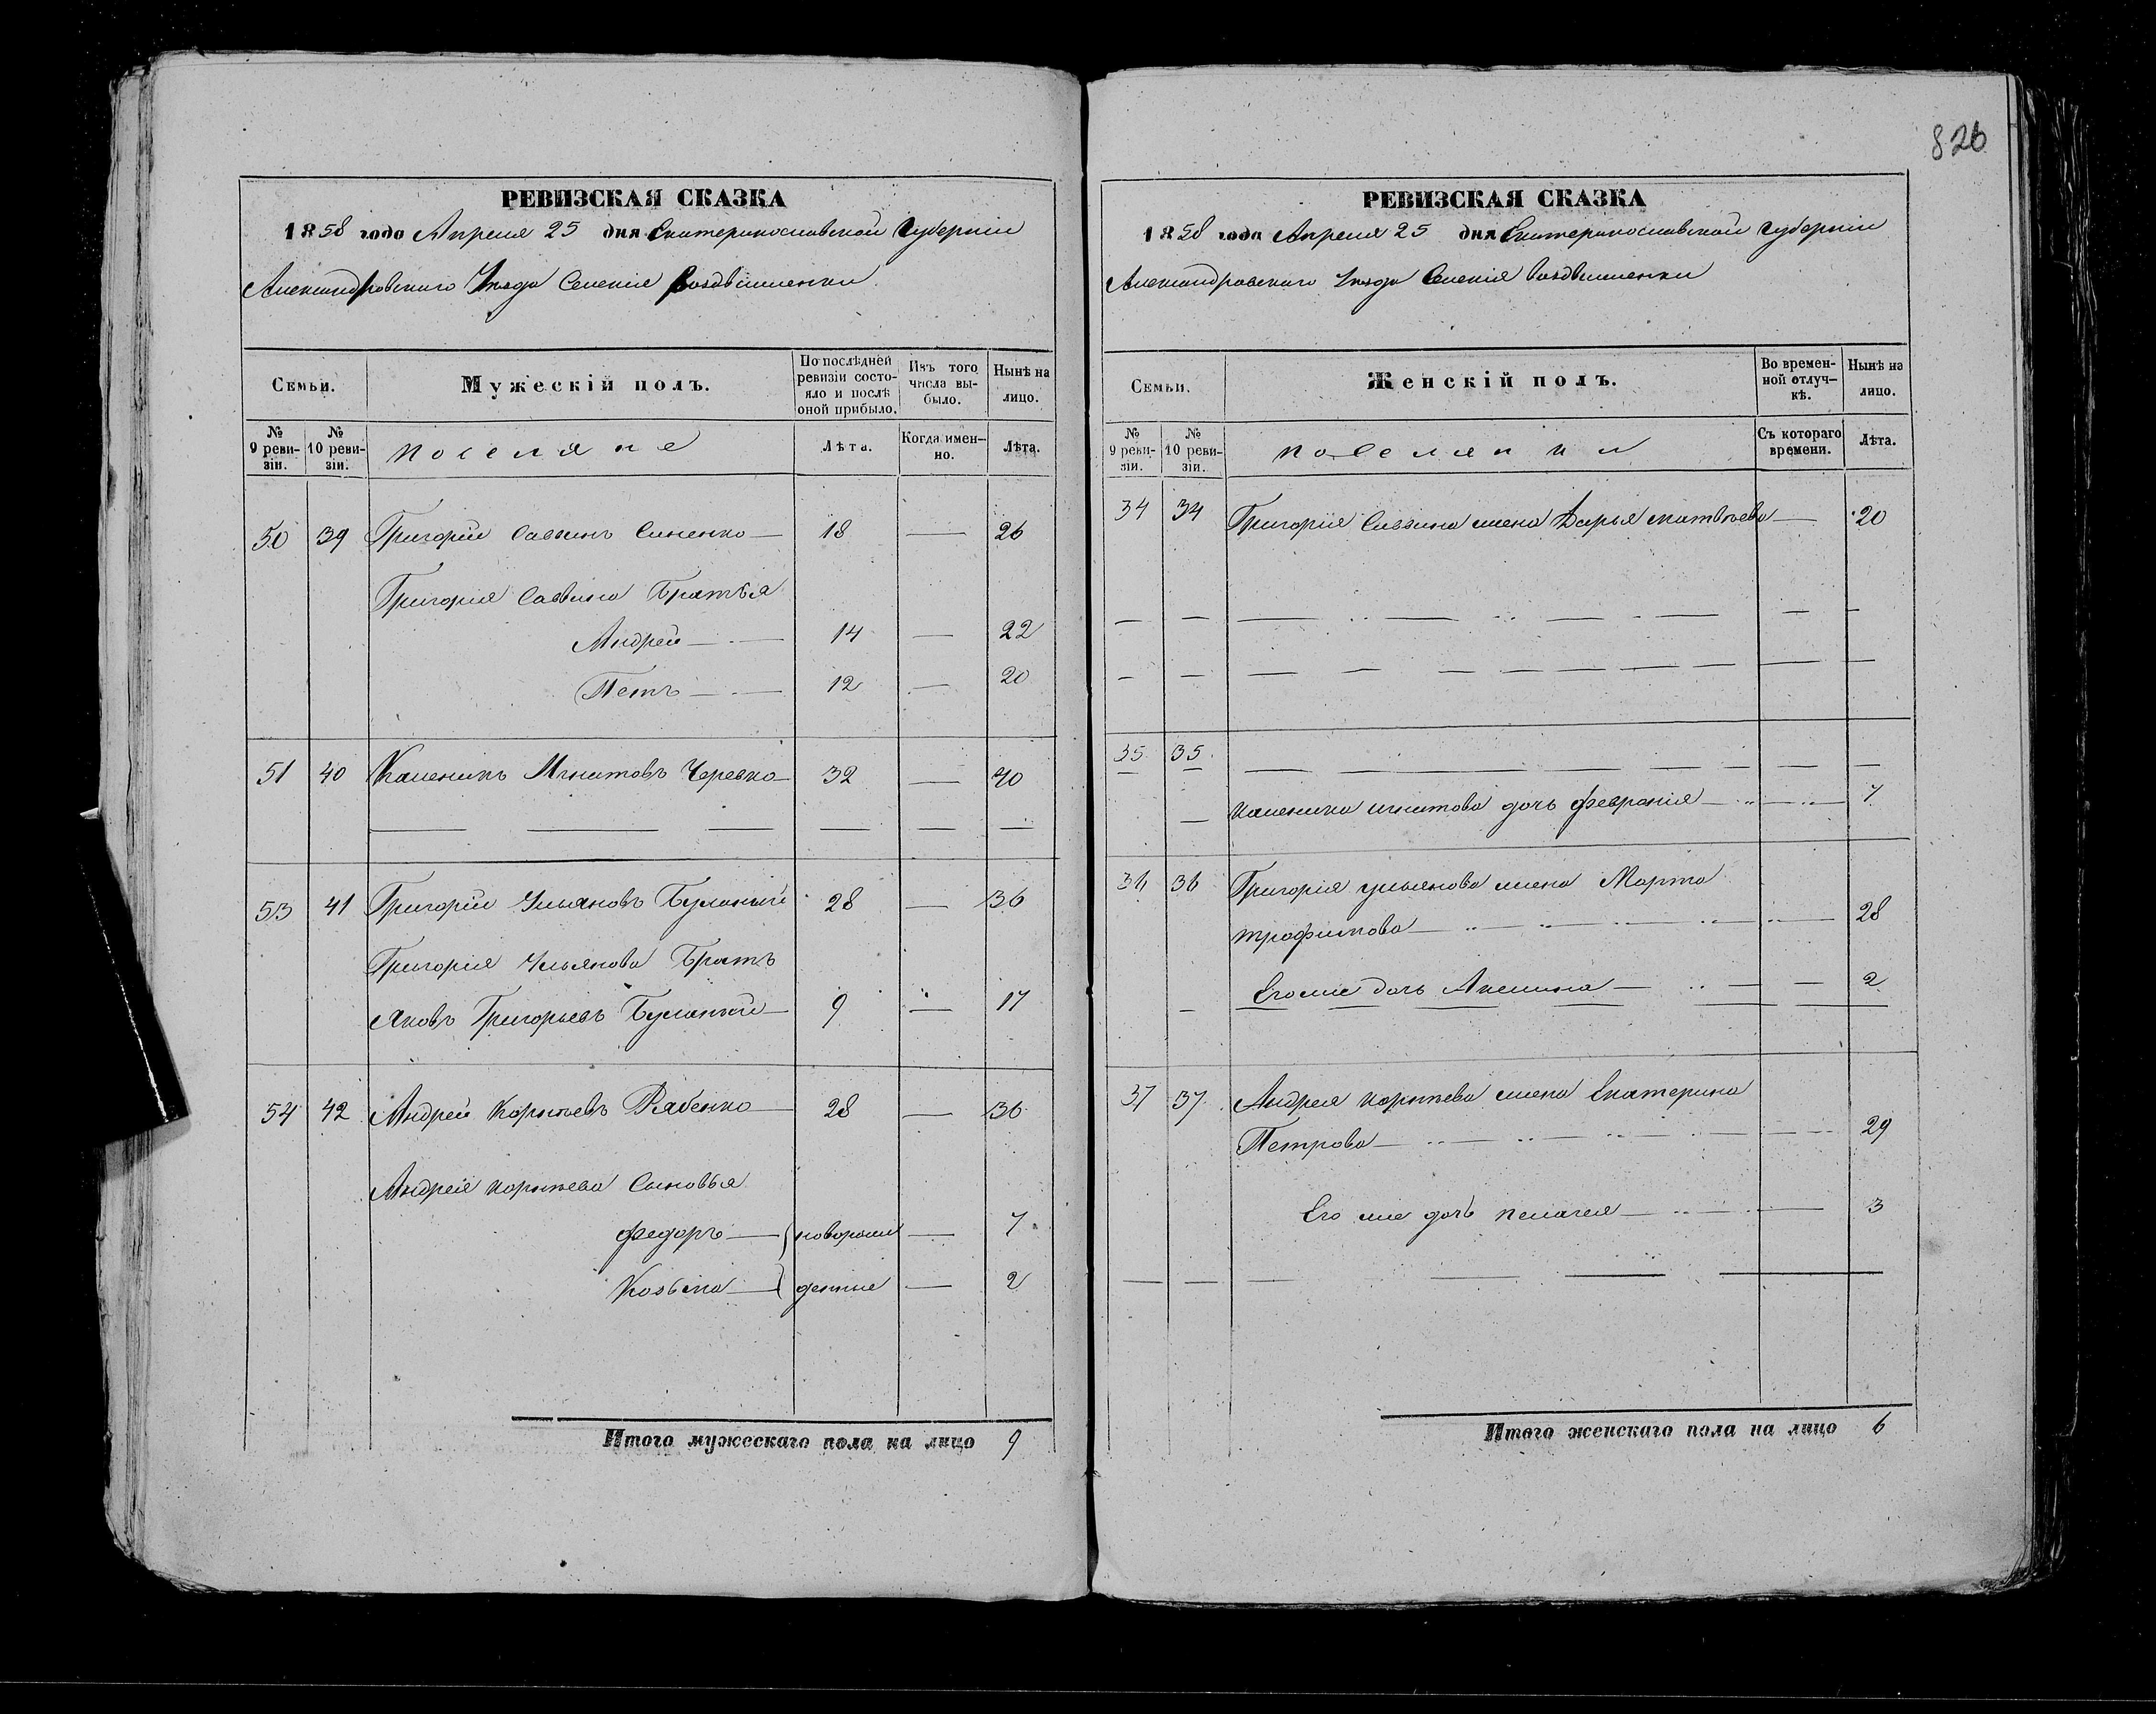 826
РЕВИЗСКАЯ СКАЗКА
1858 года Апреля 25 дня Екатеринославской Губерніи
Александровского Уезда Селенія Воздвиженки
Семьи.
Мужескій полъ.
По послѣдней ревизіи состояло и послѣ оной прибыло.
Изъ того числа выбыло.
Нынѣ на лицо.
№ 9 ревизіи.
№ 10 ревизіи.
поселяне
Лѣта.
Когда именно.
Лѣта.
50 39 Григорій Саввинъ Синенко — 18 — 26
Григорія Саввина Братья
Андрей — 14 — 22
Петъ — 12 — 20
51 40 Каленикъ Игнатовъ Черевко — 32 — 40
53 41 Григорій Ульяновъ Буланый 28 — 36
Григорія Ульянова Братъ
Яковъ Григорьевъ Буланый — 9 — 17
54 42 Андрей Корнѣевъ Рябенко — 28 — 36
Андрея Корнѣева Сыновья
Федоръ — новорож — 7
Козьма — денные — 2
Итого мужескаго пола на лицо 9
РЕВИЗСКАЯ СКАЗКА
1858 года Апреля 25 дня Екатеринославской Губерніи
Александровского Уезда Селенія Воздвиженки
Семьи.
Женскій полъ.
Во временной отлучкѣ.
Нынѣ на лицо.
№ 9 ревизіи.
№ 10 ревизіи.
поселянки
Съ котораго времени.
Лѣта.
34 34 Григорія Саввина жена Дарья Матвѣева — 20
35 35
Каленика Игнатова дочь Феврония — 7
36 36 Григорія Ульянова жена Марта
Трофимова — 28
Егоже дочь Акилина — 2
37 37 Андрея Корнѣева жена Екатерина
Петрова — 29
Его же дочь Пелагея — 3
Итого женскаго пола на лицо 6